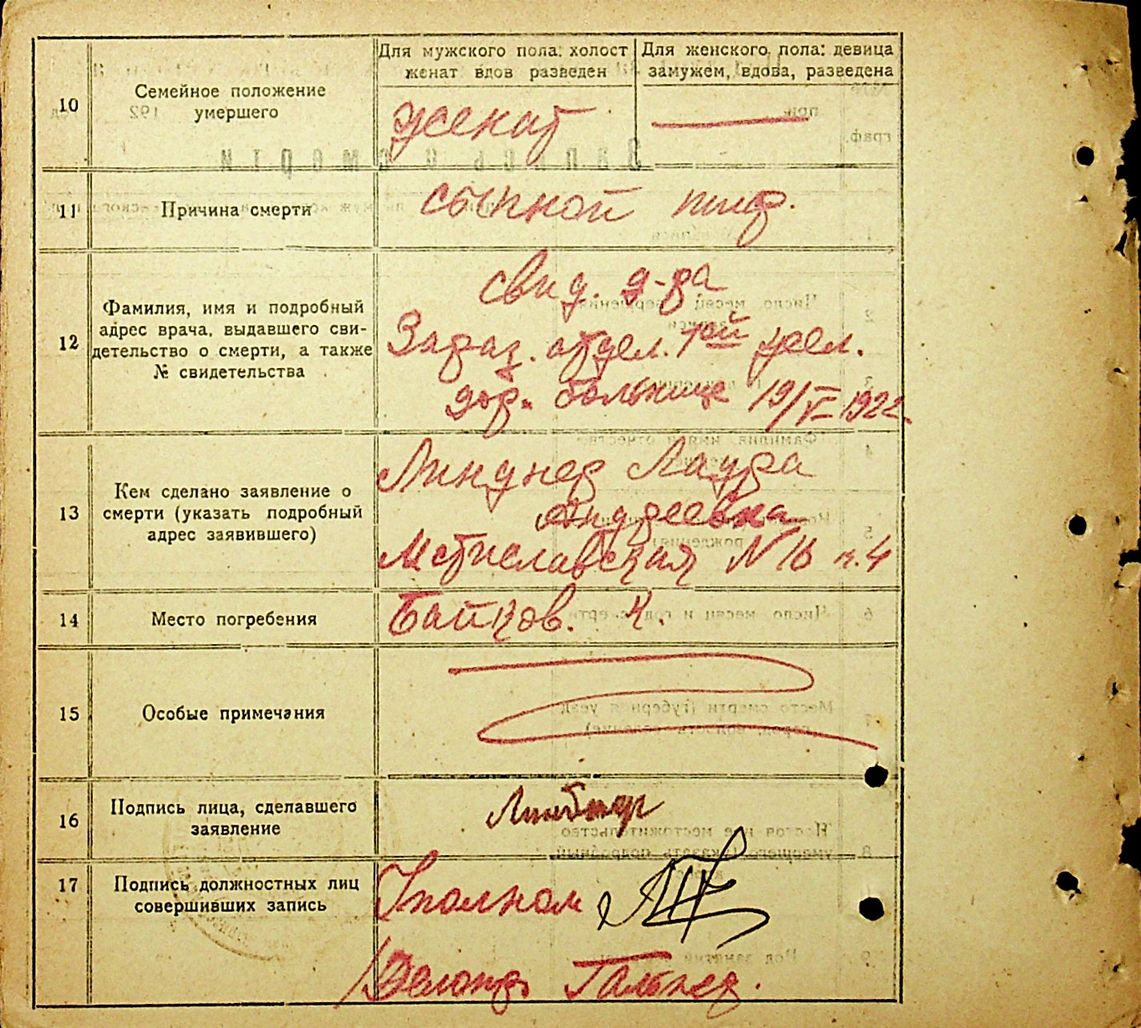 10
Семейное положение
умершего
Для мужского пола: холост
женат вдов разведен
Для женского пола: девица
замужем, вдова, разведена
женат
11
Причина смерти
сыпной тиф.
12
Фамилия, имя и подробный
адрес врача, выдавшего сви-
детельство о смерти, а также
№ свидетельства
свид. д-ра
Зараз. отдел. 1ой
дор. больнице 19/V 1922.
13
Кем сделано заявление о
смерти (указать подробный
адрес заявившего)
Линднер Лаура
Андреевна
Мстиславская N 16 п. 4
14
Место погребения
Байков. К.
15
Особые примечания
16
Подпись лица, сделавшего
заявление
17
Подпись должностных лиц
совершивших запись
Уполном
Делопр.